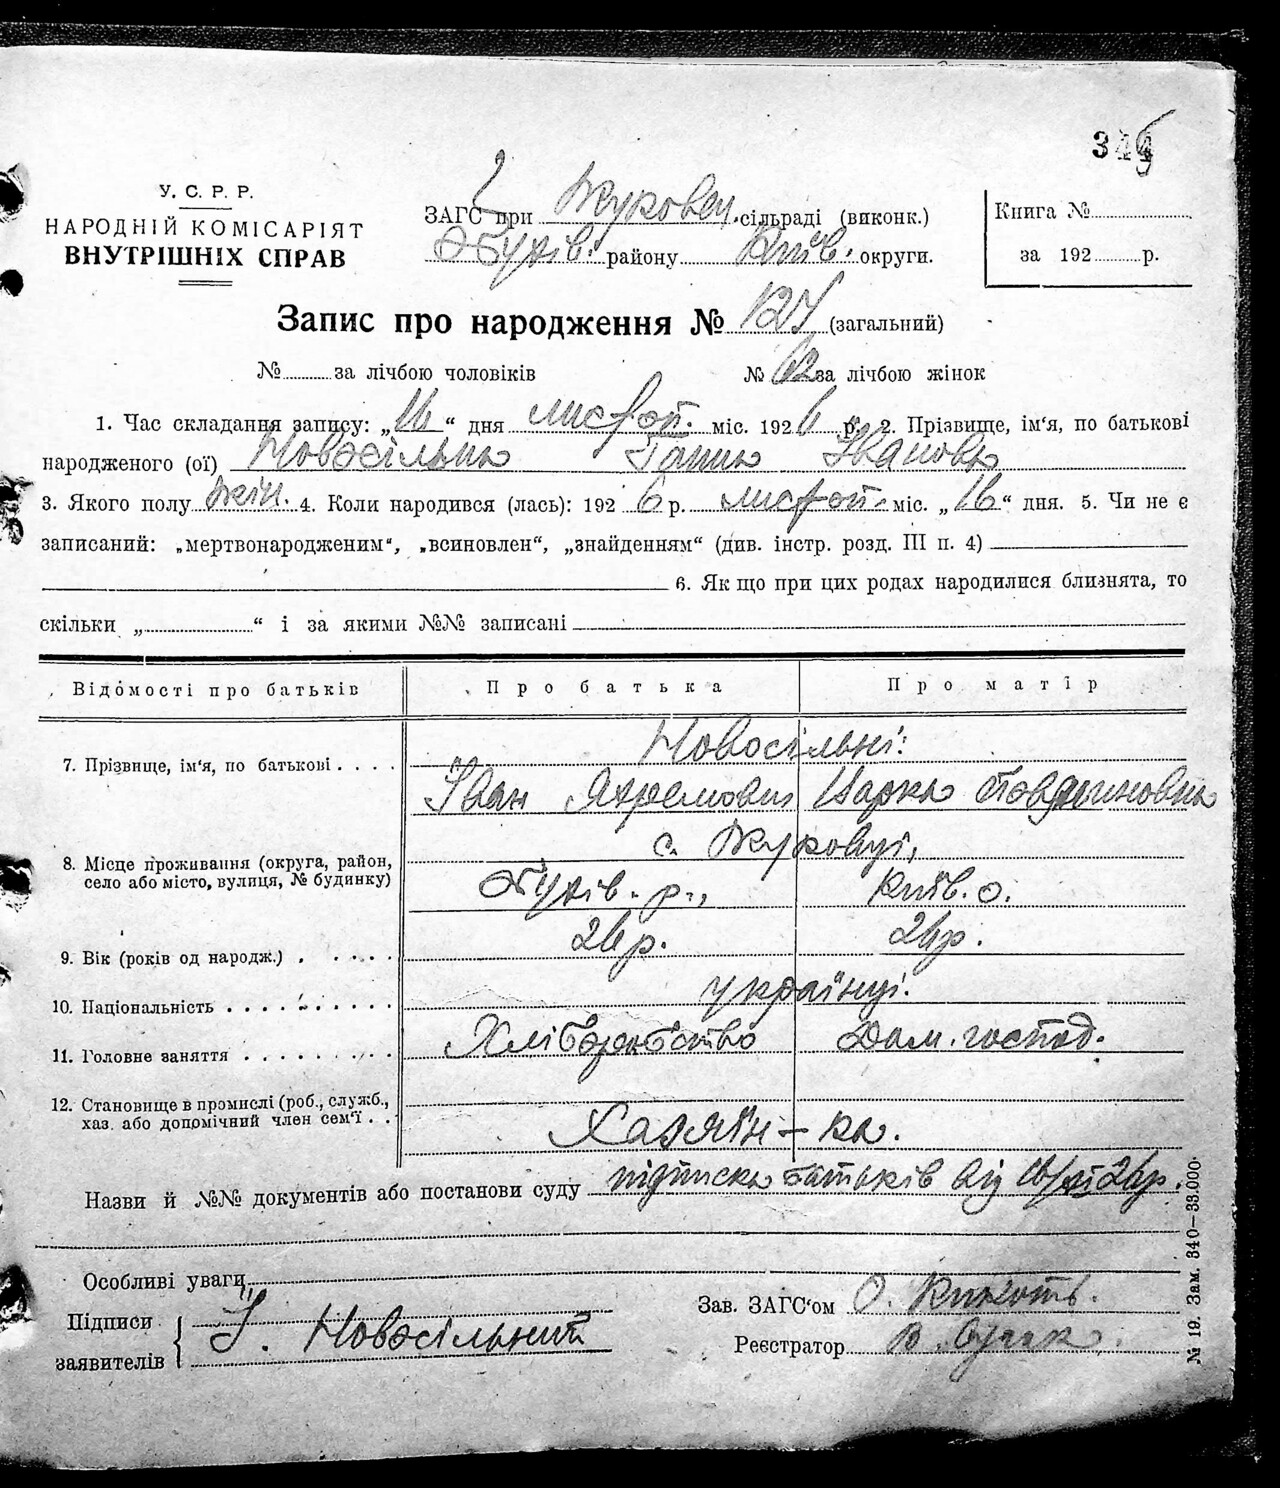 345
У. С. Р. Р.
НАРОДНІЙ КОМІСАРІЯТ
ВНУТРІШНІХ СПРАВ
ЗАГС при Жуковец. сільраді (виконк.)
Обухів. району Київ. округи.
Книга №
за 192 р.
Запис про народження № 127 (загальний)
№ за лічбою чоловіків № 62 за лічбою жінок
1. Час складання запису: „16“ дня листоп. міс. 1926 р. 2. Прізвище, ім'я, по батькові
народженого (ої) Новосільна Ганна Івановна
3. Якого полу жін. 4. Коли народився (лась): 1926 р. листоп. міс. „16“ дня. 5. Чи не є
записаний: „мертвонародженим“, „всиновлен“, „знайденням“ (див. інстр. розд. III п. 4)
6. Як що при цих родах народилися близнята, то
скільки „ “ і за якими №№ записані
Відомості про батьків Про батька Про матір
Новосільні:
7. Прізвище, ім'я, по батькові . . . .
Іван Яхремович
с. Жуковці,
8. Місце проживання (округа, район,
село або місто, вулиця, № будинку)
Обухів. р., Київ. о.
26 р. 24 р.
9. Вік (років од народж.) . . . . . .
українці.
10. Національність . . . . . . . . . .
11. Головне заняття . . . . . . . . . Хліборобство Дом. господ.
12. Становище в промислі (роб., служб.,
хаз. або допомічний член сем'ї . .
Хазяїн – ка.
Назви й №№ документів або постанови суду підписка батьків від 16/XI 26 р.
Особливі уваги
Підписи
заявителів
І. Новосільний
Зав. ЗАГС'ом О.
Реєстратор В.
№ 19. Зам. 340–33.000.